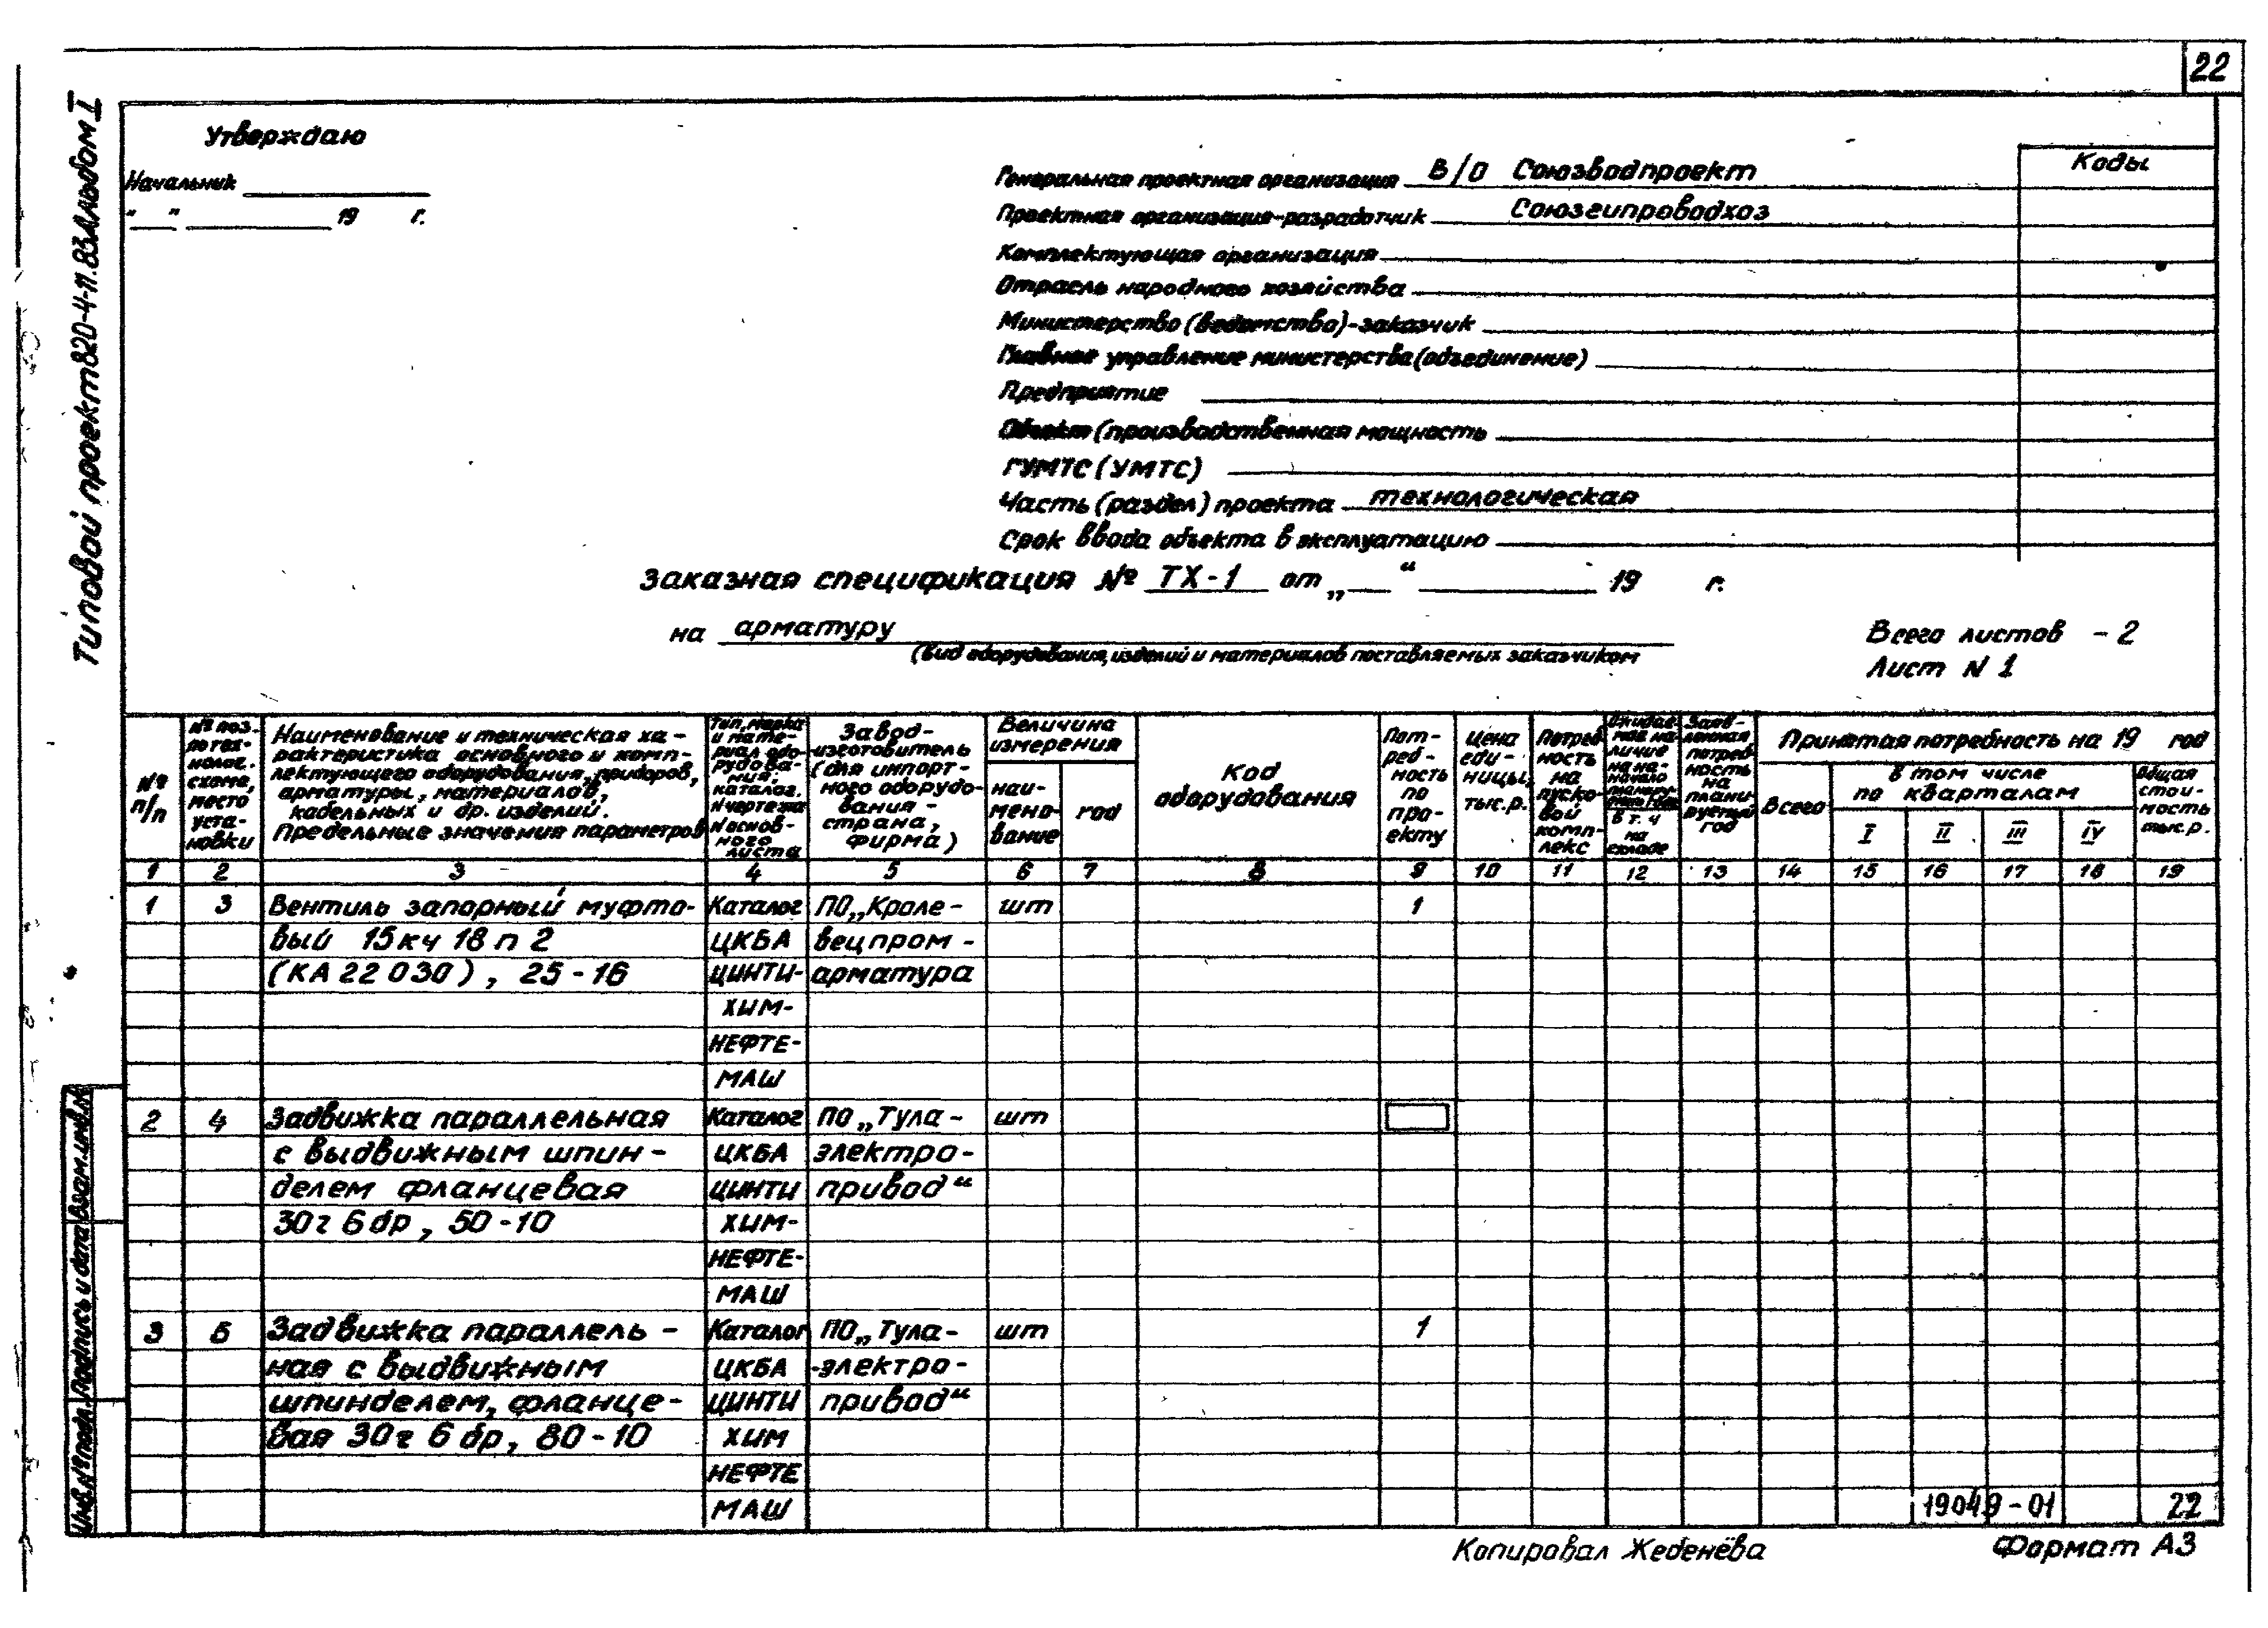 22
Типовой проект 820-4-11.83 Альбом I
Утверждаю
Начальник
" " 19 г.
Коды
Генеральная проектная организация В/О Союзводпроект
Проектная организация-разработчик Союзгипроводхоз
Комплектующая организация
Отрасль народного хозяйства
Министерство (ведомство)-заказчик
Главное управление министерства (объединение)
Предприятие
Объект (производственная мощность
ГУМТС (УМТС)
Часть (раздел) проекта технологическая
Срок ввода объекта в эксплуатацию
Заказная спецификация № ТХ-1 от „ “ 19 г.
на арматуру
(вид оборудования, изделий и материалов поставляемых заказчиком
Всего листов - 2
Лист N 1
№ п/п
№ поз. по технолог. схеме, место установки
Наименование и техническая ха-
рактеристика основного и комп-
лектующего оборудования, приборов,
арматуры, материалов,
кабельных и др. изделий.
Предельные значения параметров
Тип, марка
и мате-
риал обо-
рудова-
ния:
каталог.
N чертежа
N основ-
ного
листа
Завод-
изготовитель
(для импорт-
ного оборудо-
вания -
страна,
фирма)
Величина
измерения
наи-
мено-
вание
год
Код
оборудования
Пот-
реб-
ность
по
про-
екту
Цена
еди-
ницы,
тыс.р.
Потреб
ность
на
пуско-
вой
комп-
лекс
Ожидае-
мое на-
личие
на на-
чало
в т.ч
на
складе
Заяв-
ленная
потреб
ность
на
плани-
руемый
год
Принятая потребность на 19 год
Всего
в том числе
по кварталам
I II III IV
Общая
стои-
мость
тыс.р.
1 2 3 4 5 6 7 8 9 10 11 12 13 14 15 16 17 18 19
1 3 Вентиль запорный муфто- Каталог ПО „Кроле- шт 1
вый 15кч 18 п 2 ЦКБА вецпром-
(КА 22 030), 25-16 ЦИНТИ- арматура
ХИМ-
НЕФТЕ-
МАШ
2 4 Задвижка параллельная Каталог ПО „Тула- шт
с выдвижным шпин- ЦКБА электро-
делем фланцевая ЦИНТИ привод“
30ч 6 бр, 50-10 ХИМ-
НЕФТЕ-
МАШ
3 5 Задвижка параллель- Каталог ПО „Тула- шт 1
ная с выдвижным ЦКБА -электро-
шпинделем, фланце- ЦИНТИ привод“
вая 30ч 6 бр, 80-10 ХИМ
НЕФТЕ
МАШ
19049-01 22
Инв.№ подл. Подпись и дата Взам.инв.№
Копировал Жебенёва Формат А3